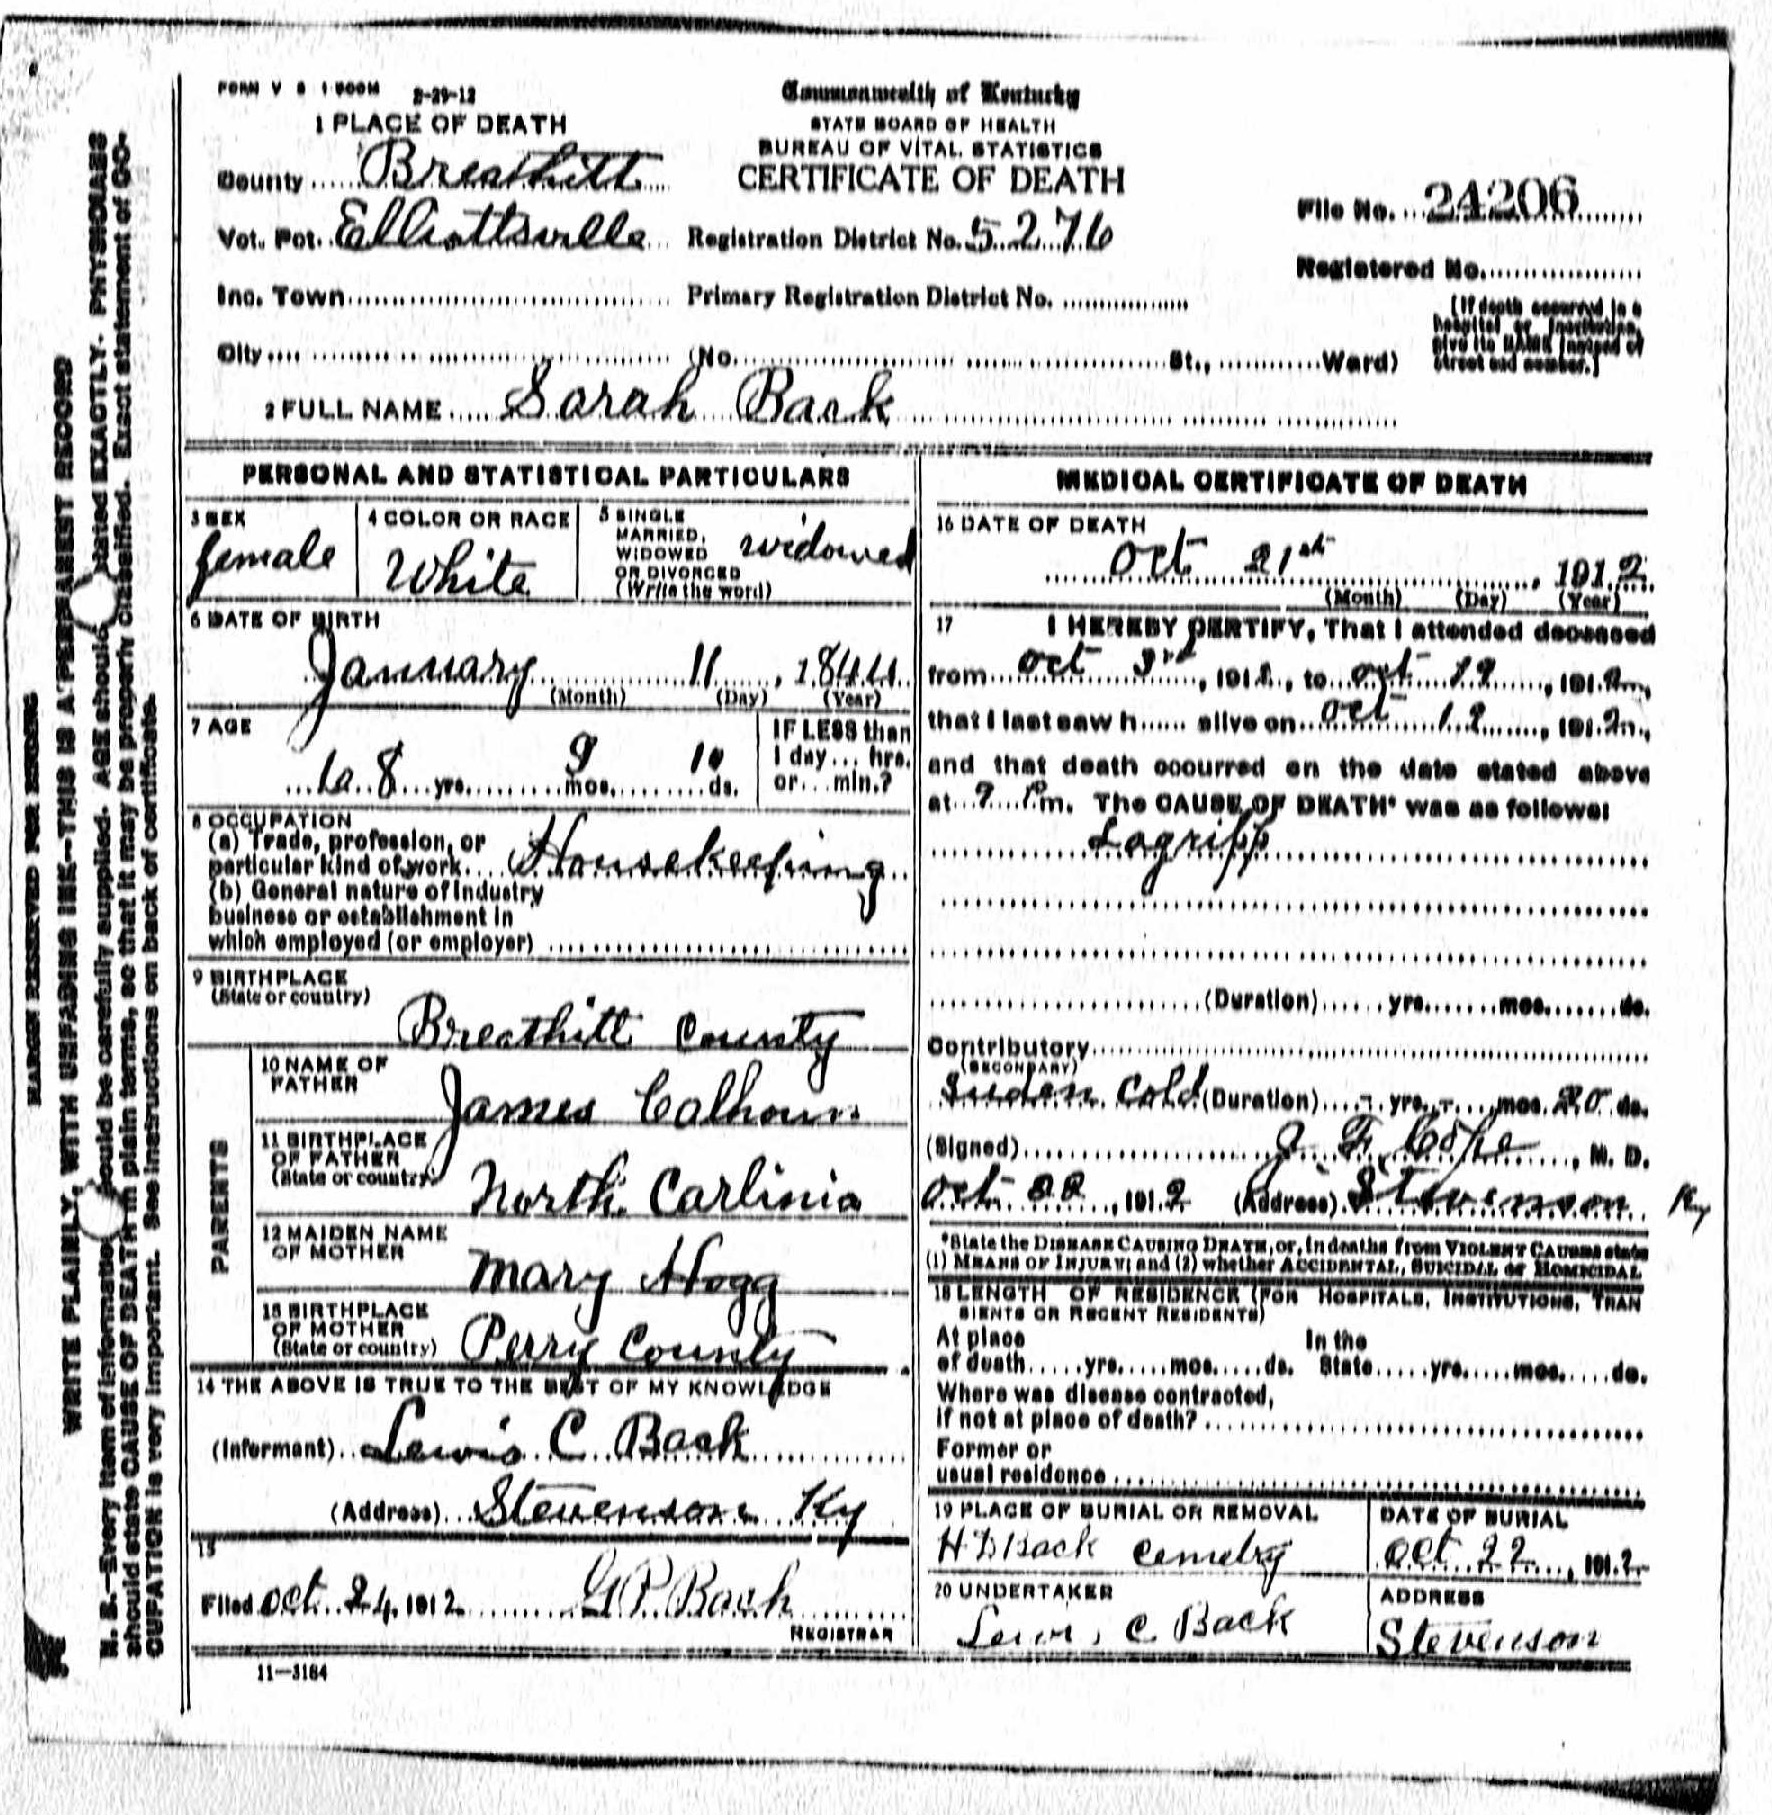 FORM V S 1-500M 2-29-12
Commonwealth of Kentucky
STATE BOARD OF HEALTH
BUREAU OF VITAL STATISTICS
CERTIFICATE OF DEATH
1 PLACE OF DEATH
County Breathitt
Vot. Pct. Elliottsville
Registration District No. 5276
File No. 24206
Registered No.
Inc. Town
Primary Registration District No.
(If death occurred in a
hospital or institution,
give its NAME instead of
street and number.)
City (No. St., Ward)
2 FULL NAME Sarah Back
PERSONAL AND STATISTICAL PARTICULARS
3 SEX
female
4 COLOR OR RACE
White
5 SINGLE
MARRIED,
WIDOWED
OR DIVORCED
(Write the word)
widowed
6 DATE OF BIRTH
January 11, 1844
(Month) (Day) (Year)
7 AGE
68 yrs. 9 mos. 10 ds.
IF LESS than
1 day... hrs.
or... min.?
8 OCCUPATION
(a) Trade, profession, or
particular kind of work. Housekeeping
(b) General nature of industry
business or establishment in
which employed (or employer)
9 BIRTHPLACE
(State or country)
Breathitt County
PARENTS
10 NAME OF
FATHER
James Calhoun
11 BIRTHPLACE
OF FATHER
(State or country)
North Carlinia
12 MAIDEN NAME
OF MOTHER
Mary Hogg
13 BIRTHPLACE
OF MOTHER
(State or country)
Perry County
14 THE ABOVE IS TRUE TO THE BEST OF MY KNOWLEDGE
(Informant) Lewis C. Back
(Address) Stevenson Ky
15
Filed Oct. 24, 1912 G P Back
REGISTRAR
11-3184
MEDICAL CERTIFICATE OF DEATH
16 DATE OF DEATH
Oct 21st, 1912
(Month) (Day) (Year)
17 I HEREBY CERTIFY, That I attended deceased
from Oct 3rd, 1912, to Oct 12, 1912,
that I last saw h alive on Oct 12, 1912,
and that death occurred on the date stated above
at 9 Pm. The CAUSE OF DEATH* was as follows:
Lagripp
(Duration) yrs. mos. ds.
Contributory
(SECONDARY)
Suden Cold (Duration) - yrs. - mos. 20 ds.
(Signed) J. F. Cope, M. D.
Oct 22, 1912 (Address) Stevenson Ky
*State the DISEASE CAUSING DEATH, or, in deaths from VIOLENT CAUSES state
(1) MEANS OF INJURY; and (2) whether ACCIDENTAL, SUICIDAL or HOMICIDAL
18 LENGTH OF RESIDENCE (FOR HOSPITALS, INSTITUTIONS, TRAN
SIENTS OR RECENT RESIDENTS)
At place In the
of death yrs. mos. ds. State yrs. mos. ds.
Where was disease contracted,
if not at place of death?
Former or
usual residence
19 PLACE OF BURIAL OR REMOVAL
Back cemetry
DATE OF BURIAL
Oct 22, 1912
20 UNDERTAKER
Lewis C Back
ADDRESS
Stevenson
MARGIN RESERVED FOR BINDING
WRITE PLAINLY, WITH UNFADING INK—THIS IS A PERMANENT RECORD
N. B.—Every item of information should be carefully supplied. AGE should stated EXACTLY. PHYSICIANS
should state CAUSE OF DEATH in plain terms, so that it may be properly classified. Exact statement of OC-
CUPATION is very important. See instructions on back of certificate.